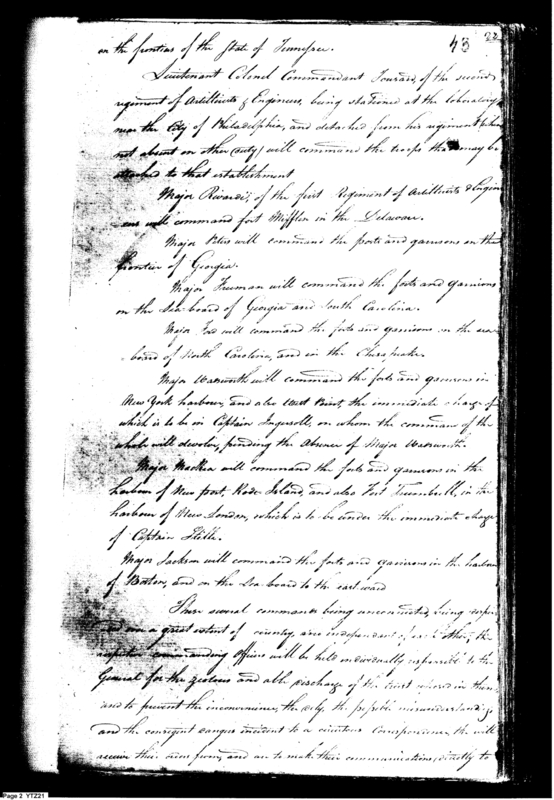 43 22
on the frontiers of the State of Tennessee.
Lieutenant Colonel Commandant Tousard, of the second
regiment of Artillerists & Engineers, being stationed at the laboratory
near the City of Philadelphia, and detached from his regiment, (when
not absent on other duty) will command the troops that may be
attached to that establishment
Major Rivardi, of the first Regiment of Artillerists & Engin
eers will command fort Mifflin in the Delaware.
Major Peters will command the posts and garrisons on the
frontier of Georgia.
Major Freeman will command the forts and garrisons
on the Sea-board of Georgia and South Carolina.
Major Ford will command the forts and garrisons on the sea
board of North Carolina, and in the Chesapeake.
Major Wadsworth will command the forts and garrisons in
New York harbour, and also West Point, the immediate charge of
which is to be in Captain Ingersoll, on whom the command of the
whole will devolve, pending the absence of Major Wadsworth.
Major will command the forts and garrisons in the
harbour of New port, Rode Island, and also Fort Trumbull, in the
harbour of New London, which is to be under the immediate charge
of Captain Stille.
Major Jackson will command the forts and garrisons in the harbour
of Boston, and on the Sea board to the eastward
These several commands being unconnected, being
over a great extent of country, are independent of each other; the
respective commanding Officers will be held individually responsible to the
General for the zealous and able discharge of the trust reposed in them,
and to prevent the inconvenience, the delay, the possible misunderstandings
and the consequent dangers incident to a circuitous Correspondence, they will
receive their orders from, and are to make their communications directly to
Page 2 YTZ21